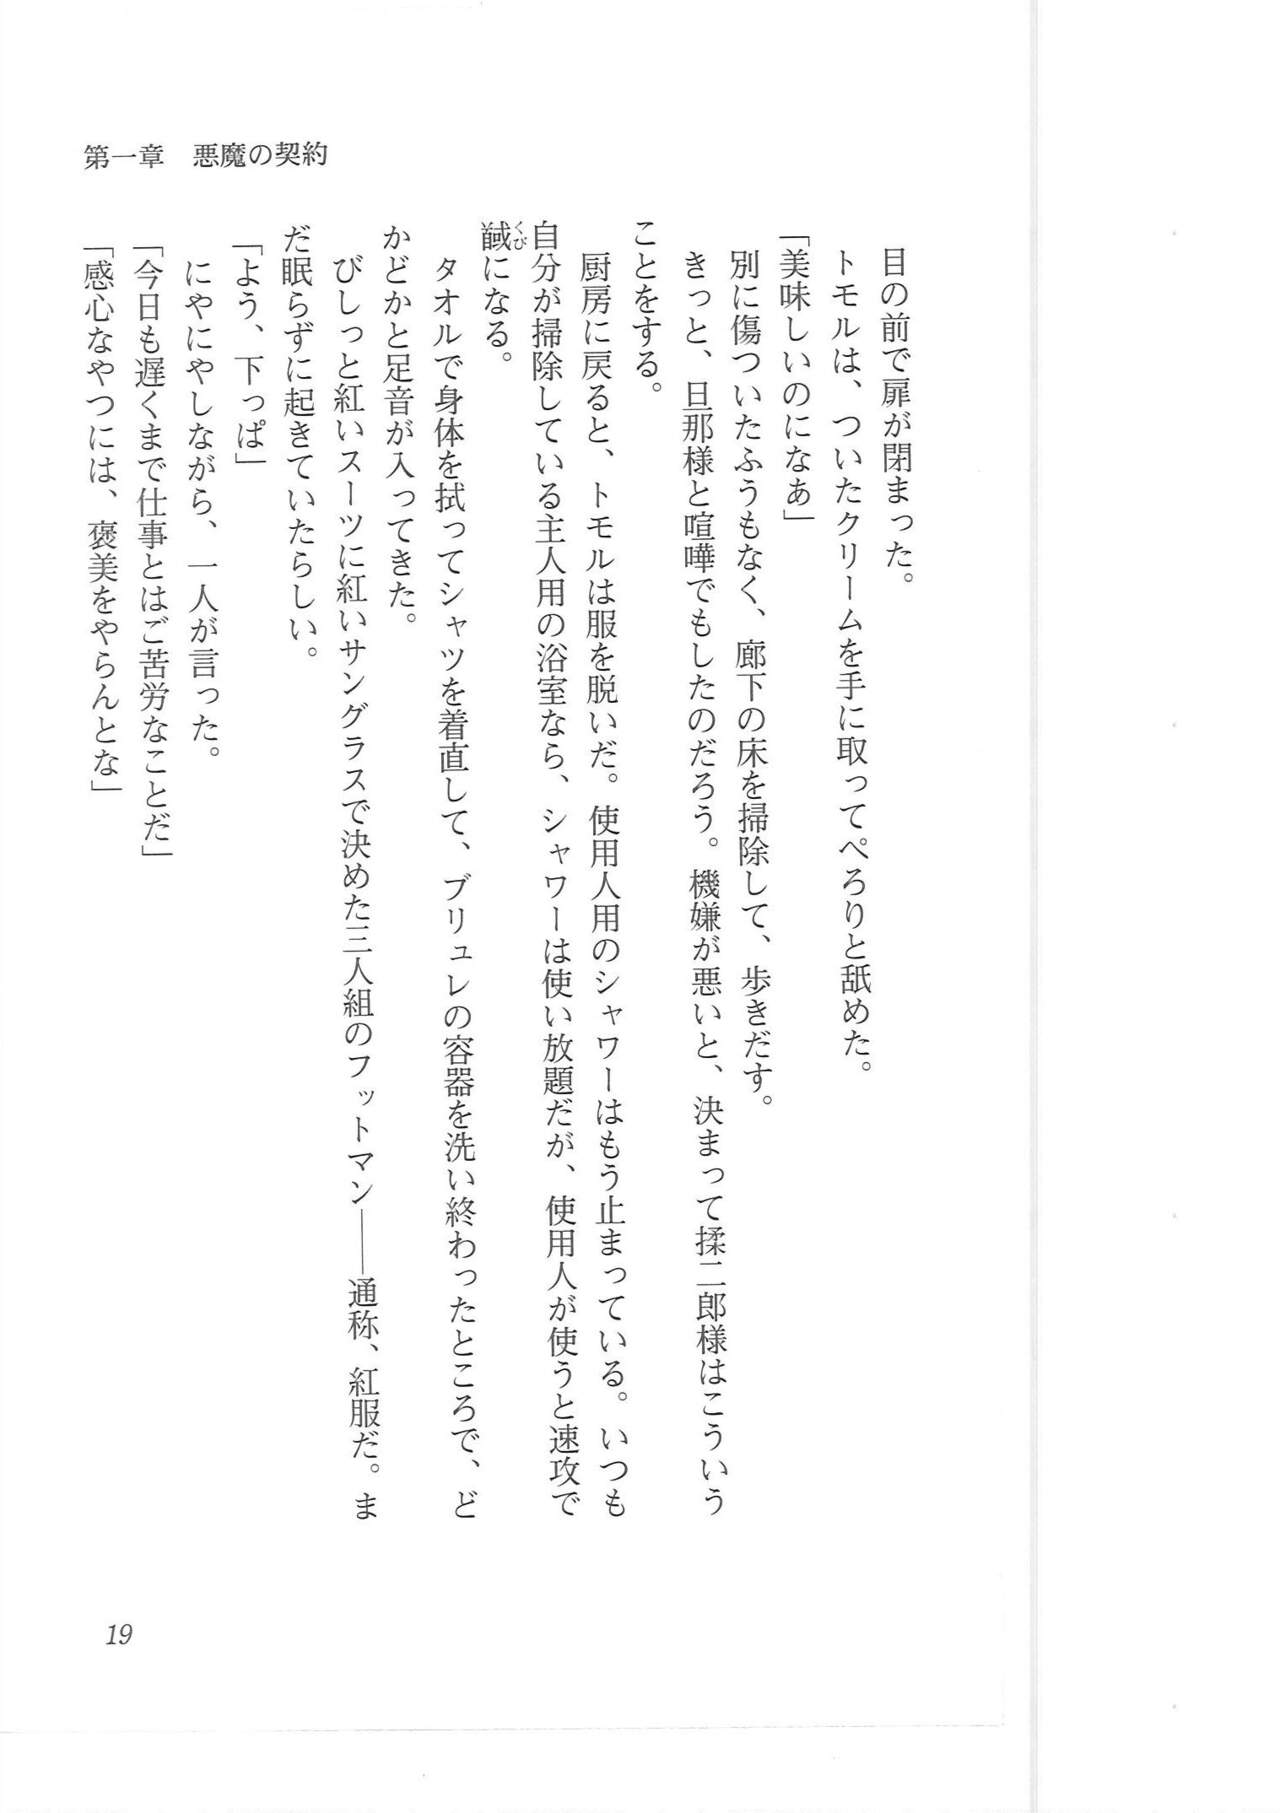 第一章　悪魔の契約
目の前で扉が閉まった。
トモルは、ついたクリームを手に取ってぺろりと舐めた。
「美味しいのになぁ」
別に傷ついたふうもなく、廊下の床を掃除して、歩きだす。
きっと、旦那様と喧嘩でもしたのだろう。機嫌が悪いと、決まって揉二郎様はこういう
ことをする。
厨房に戻ると、トモルは服を脱いだ。使用人用のシャワーはもう止まっている。いつも
自分が掃除している主人用の浴室なら、シャワーは使い放題だが、使用人が使うと速攻で
馘になる。
くび
タオルで身体を拭ってシャツを着直して、ブリュレの容器を洗い終わったところで、ど
かどかと足音が入ってきた。
びしっと紅いスーツに紅いサングラスで決めた三人組のフットマン――通称、紅服だ。ま
だ眠らずに起きていたらしい。
「よう、下っぱ」
にやにやしながら、一人が言った。
「今日も遅くまで仕事とはご苦労なことだ」
「感心なやつには、褒美をやらんとな」
19